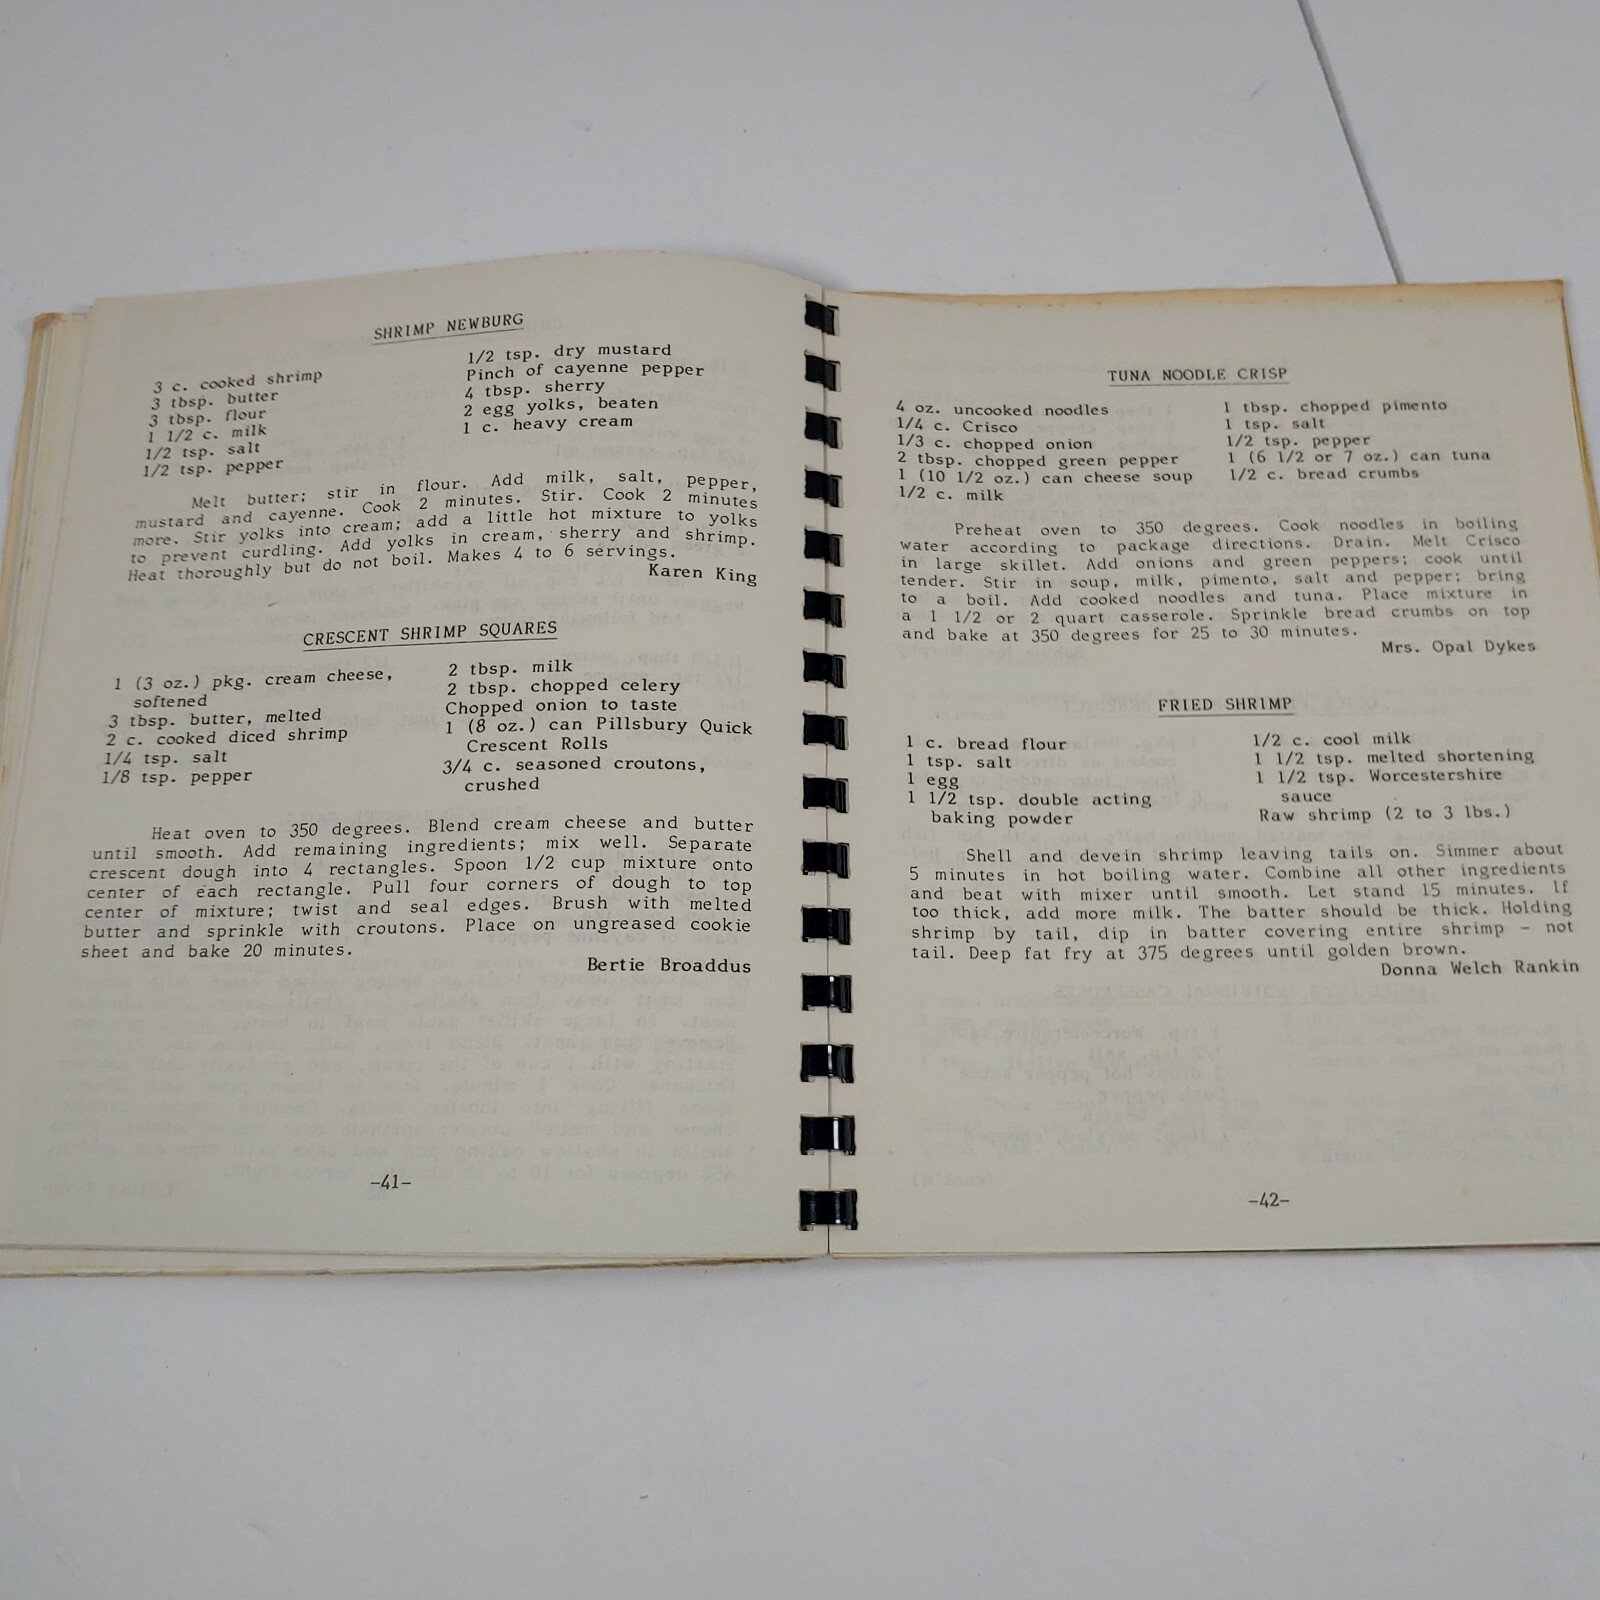 SHRIMP NEWBURG
3 c. cooked shrimp
3 tbsp. butter
3 tbsp. flour
1 1/2 c. milk
1/2 tsp. salt
1/2 tsp. pepper
1/2 tsp. dry mustard
Pinch of cayenne pepper
4 tbsp. sherry
2 egg yolks, beaten
1 c. heavy cream
Melt butter; stir in flour. Add milk, salt, pepper,
mustard and cayenne. Cook 2 minutes. Stir. Cook 2 minutes
more. Stir yolks into cream; add a little hot mixture to yolks
to prevent curdling. Add yolks in cream, sherry and shrimp.
Heat thoroughly but do not boil. Makes 4 to 6 servings.
Karen King
CRESCENT SHRIMP SQUARES
1 (3 oz.) pkg. cream cheese,
softened
3 tbsp. butter, melted
2 c. cooked diced shrimp
1/4 tsp. salt
1/8 tsp. pepper
2 tbsp. milk
2 tbsp. chopped celery
Chopped onion to taste
1 (8 oz.) can Pillsbury Quick
Crescent Rolls
3/4 c. seasoned croutons,
crushed
Heat oven to 350 degrees. Blend cream cheese and butter
until smooth. Add remaining ingredients; mix well. Separate
crescent dough into 4 rectangles. Spoon 1/2 cup mixture onto
center of each rectangle. Pull four corners of dough to top
center of mixture; twist and seal edges. Brush with melted
butter and sprinkle with croutons. Place on ungreased cookie
sheet and bake 20 minutes.
Bertie Broaddus
-41-
TUNA NOODLE CRISP
4 oz. uncooked noodles
1/4 c. Crisco
1/3 c. chopped onion
2 tbsp. chopped green pepper
1 (10 1/2 oz.) can cheese soup
1/2 c. milk
1 tbsp. chopped pimento
1 tsp. salt
1/2 tsp. pepper
1 (6 1/2 or 7 oz.) can tuna
1/2 c. bread crumbs
Preheat oven to 350 degrees. Cook noodles in boiling
water according to package directions. Drain. Melt Crisco
in large skillet. Add onions and green peppers; cook until
tender. Stir in soup, milk, pimento, salt and pepper; bring
to a boil. Add cooked noodles and tuna. Place mixture in
a 1 1/2 or 2 quart casserole. Sprinkle bread crumbs on top
and bake at 350 degrees for 25 to 30 minutes.
Mrs. Opal Dykes
FRIED SHRIMP
1 c. bread flour
1 tsp. salt
1 egg
1 1/2 tsp. double acting
baking powder
1/2 c. cool milk
1 1/2 tsp. melted shortening
1 1/2 tsp. Worcestershire
sauce
Raw shrimp (2 to 3 lbs.)
Shell and devein shrimp leaving tails on. Simmer about
5 minutes in hot boiling water. Combine all other ingredients
and beat with mixer until smooth. Let stand 15 minutes. If
too thick, add more milk. The batter should be thick. Holding
shrimp by tail, dip in batter covering entire shrimp - not
tail. Deep fat fry at 375 degrees until golden brown.
Donna Welch Rankin
-42-